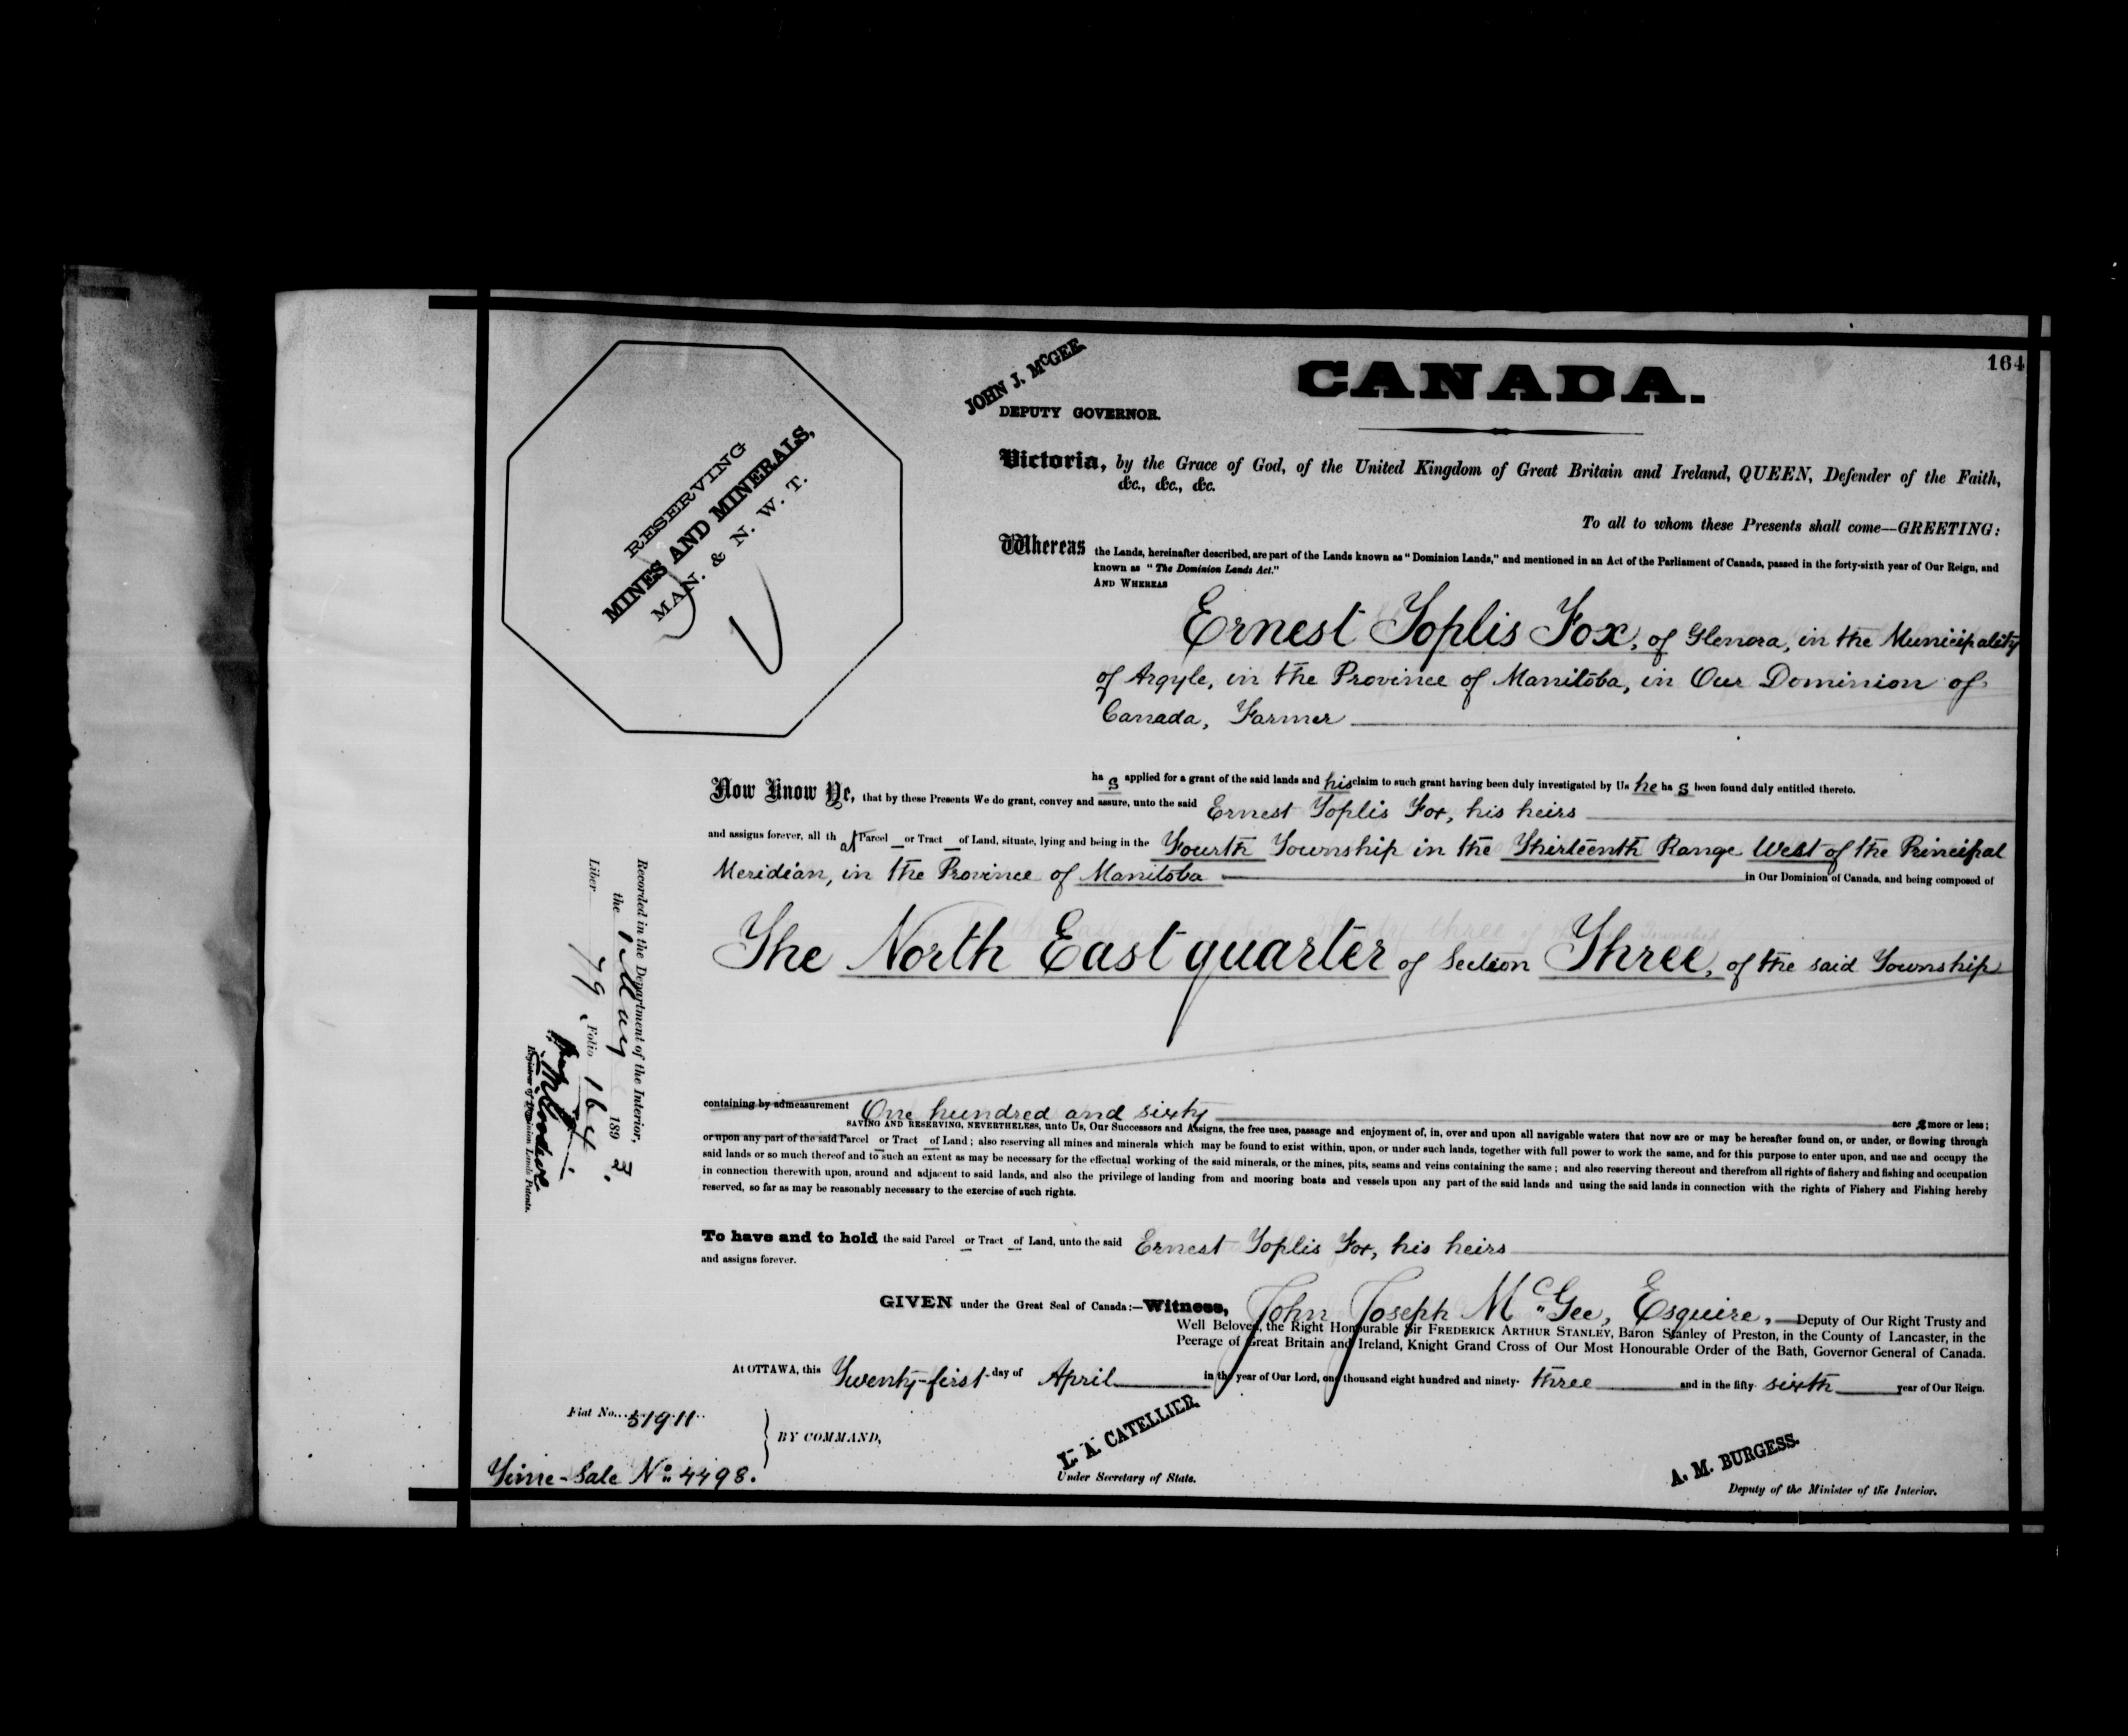 164
CANADA.
JOHN J. McGEE.
DEPUTY GOVERNOR.
RESERVING
MINES AND MINERALS,
MAN. & N. W. T.
Victoria, by the Grace of God, of the United Kingdom of Great Britain and Ireland, QUEEN, Defender of the Faith,
&c., &c., &c.
To all to whom these Presents shall come—GREETING:
Whereas the Lands, hereinafter described, are part of the Lands known as "Dominion Lands," and mentioned in an Act of the Parliament of Canada, passed in the forty-sixth year of Our Reign, and
known as "The Dominion Lands Act."
AND WHEREAS
Ernest Toplis Fox, of Glenora, in the Municipality
of Argyle, in the Province of Manitoba, in Our Dominion of
Canada, Farmer
has applied for a grant of the said lands and his claim to such grant having been duly investigated by Us he has been found duly entitled thereto.
Now Know Ye, that by these Presents We do grant, convey and assure, unto the said Ernest Toplis Fox, his heirs
and assigns forever, all that Parcel or Tract of Land, situate, lying and being in the Fourth Township in the Thirteenth Range West of the Principal
Meridian, in the Province of Manitoba in Our Dominion of Canada, and being composed of
The North East quarter of Section Three, of the said Township
containing by admeasurement One hundred and sixty acre s more or less;
SAVING AND RESERVING, NEVERTHELESS, unto Us, Our Successors and Assigns, the free uses, passage and enjoyment of, in, over and upon all navigable waters that now are or may be hereafter found on, or under, or flowing through
or upon any part of the said Parcel or Tract of Land; also reserving all mines and minerals which may be found to exist within, upon, or under such lands, together with full power to work the same, and for this purpose to enter upon, and use and occupy the
said lands or so much thereof and to such an extent as may be necessary for the effectual working of the said minerals, or the mines, pits, seams and veins containing the same; and also reserving thereout and therefrom all rights of fishery and fishing and occupation
in connection therewith upon, around and adjacent to said lands, and also the privilege of landing from and mooring boats and vessels upon any part of the said lands and using the said lands in connection with the rights of Fishery and Fishing hereby
reserved, so far as may be reasonably necessary to the exercise of such rights.
To have and to hold the said Parcel or Tract of Land, unto the said Ernest Toplis Fox, his heirs
and assigns forever.
GIVEN under the Great Seal of Canada:—Witness, John Joseph McGee, Esquire, Deputy of Our Right Trusty and
Well Beloved, the Right Honourable Sir FREDERICK ARTHUR STANLEY, Baron Stanley of Preston, in the County of Lancaster, in the
Peerage of Great Britain and Ireland, Knight Grand Cross of Our Most Honourable Order of the Bath, Governor General of Canada.
At OTTAWA, this Twenty-first day of April in the year of Our Lord, one thousand eight hundred and ninety-three and in the fifty sixth year of Our Reign.
Fiat No. 51911
BY COMMAND,
Time-Sale No. 4498.
L. A. CATELLIER,
Under Secretary of State.
A. M. BURGESS.
Deputy of the Minister of the Interior.
Recorded in the Department of the Interior,
the 1 May 1893.
Liber 79 Folio 164
Registrar of Dominion Lands Patents.